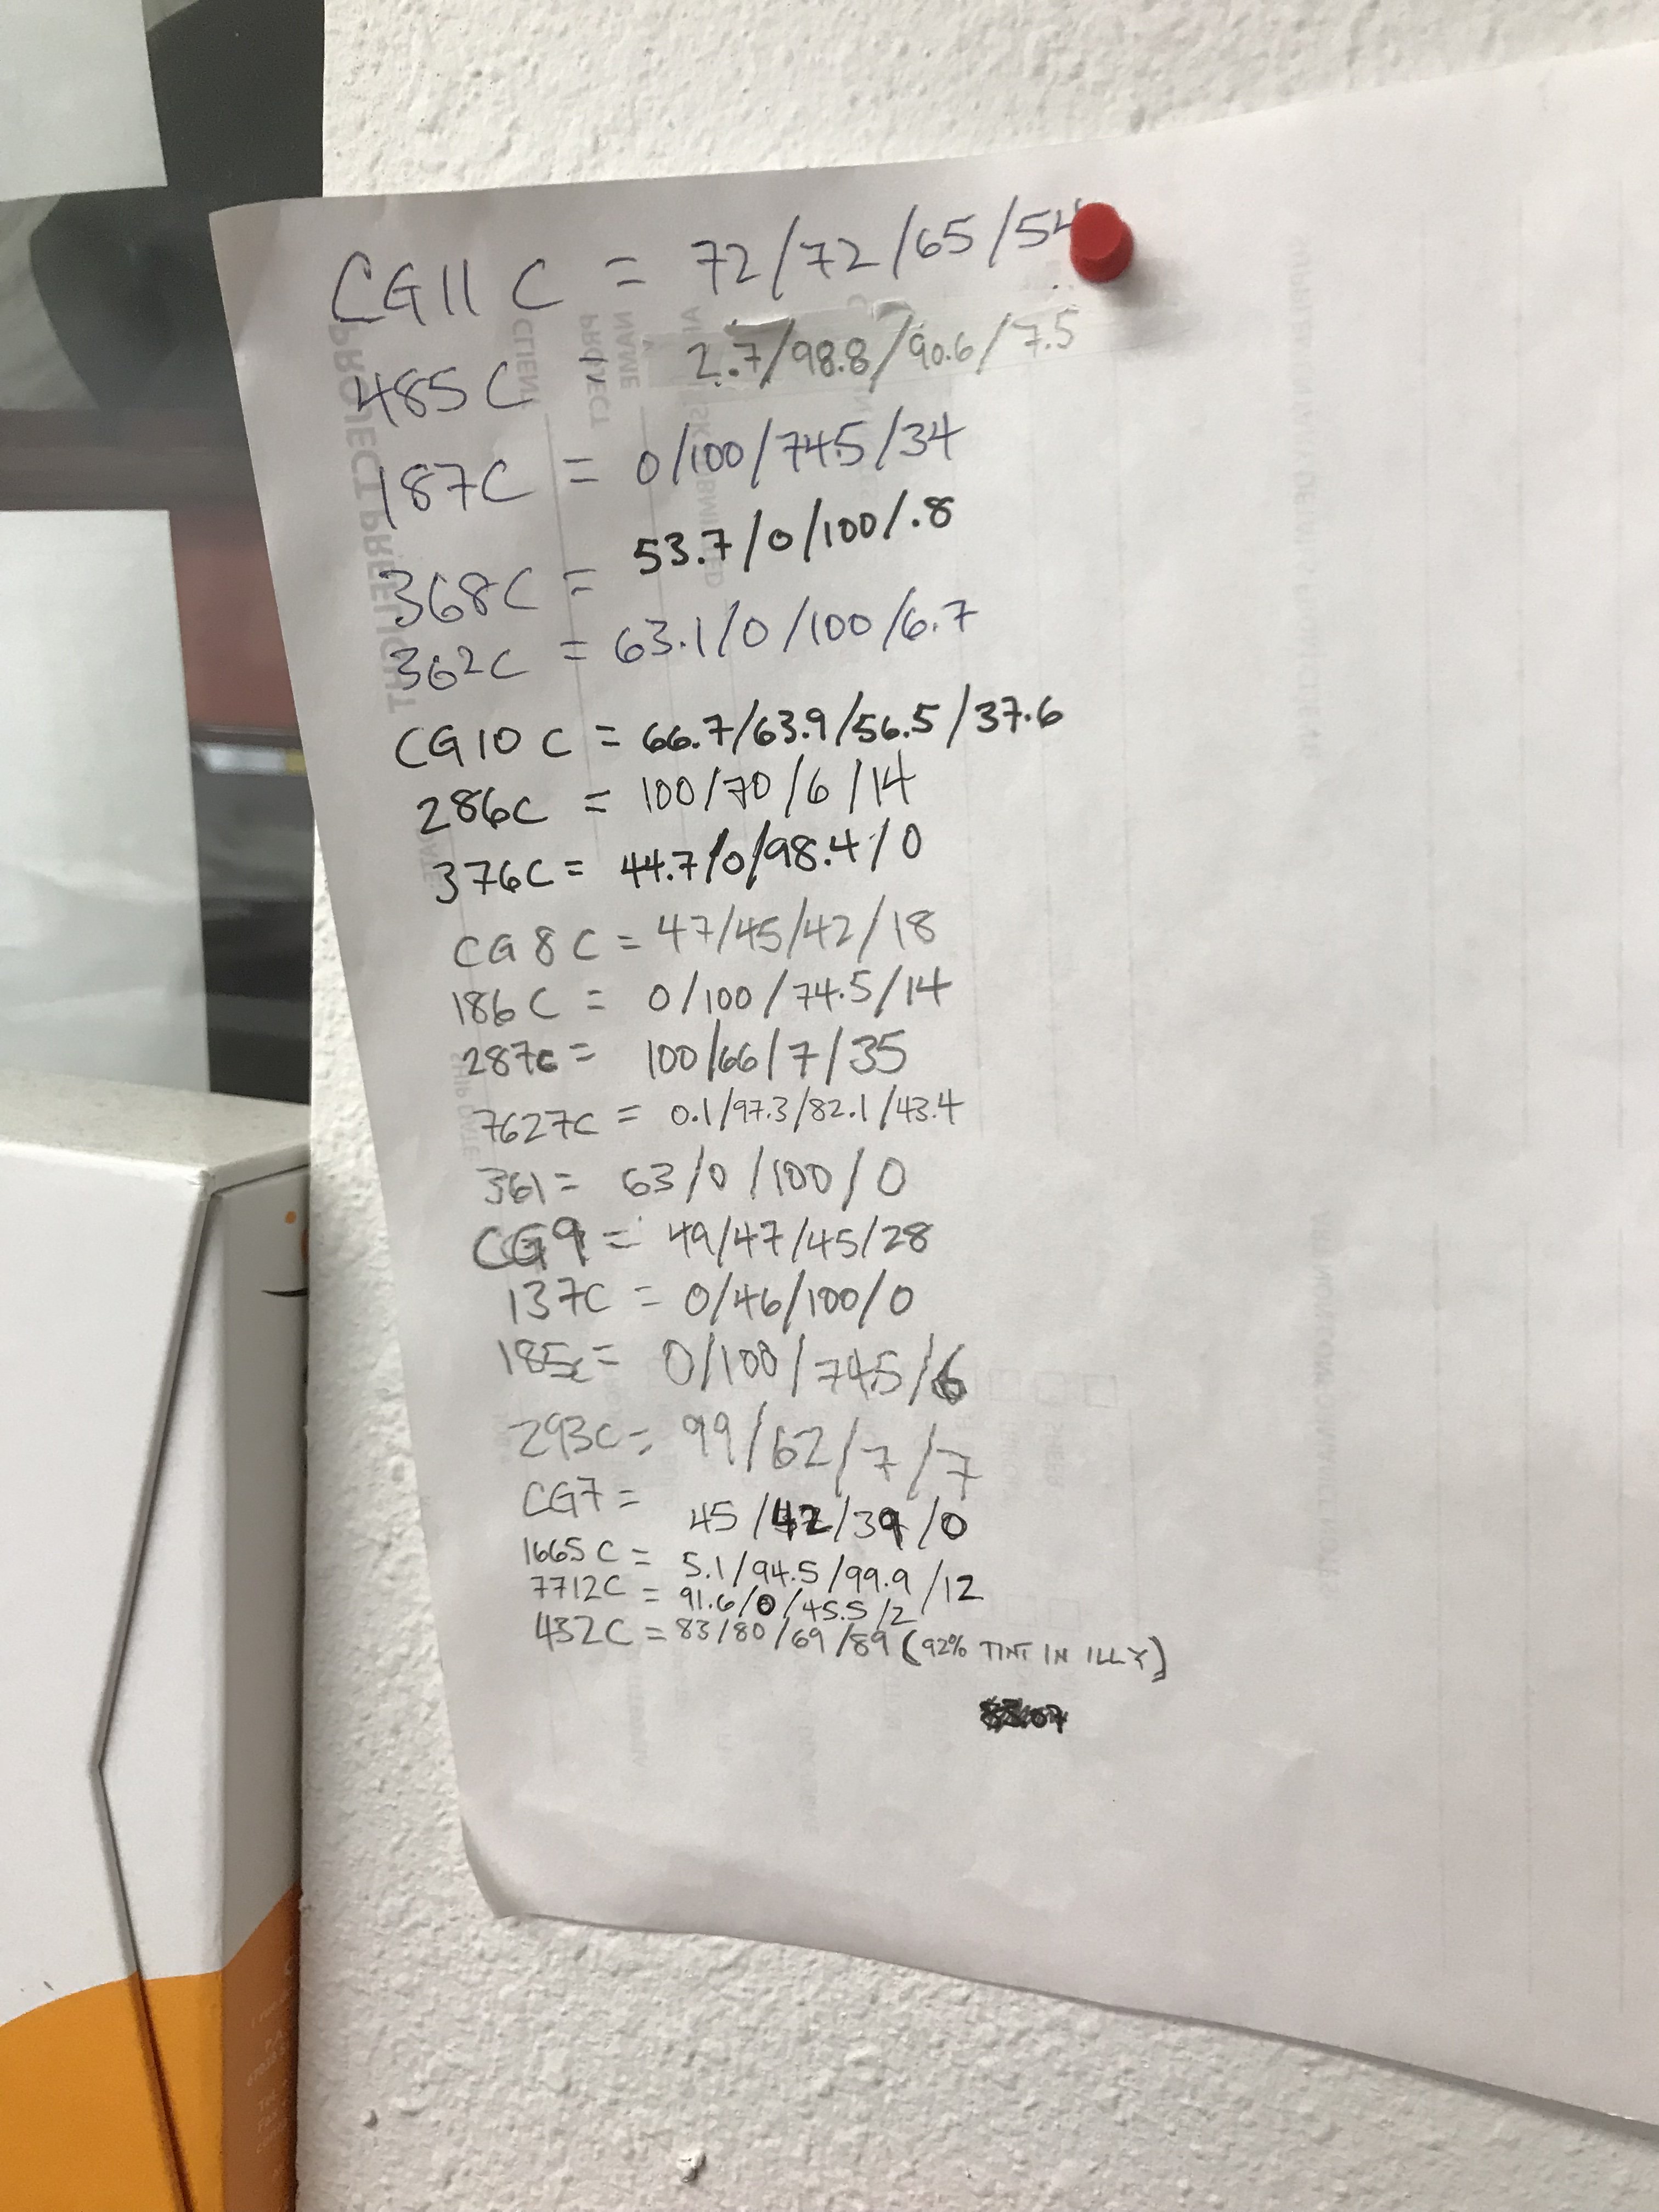 CG11 C = 72/72/65/54
485C = 2.7/98.8/90.6/7.5
187C = 0/100/74.5/34
368C = 53.7/0/100/.8
362C = 63.1/0/100/6.7
CG10 C = 66.7/63.9/56.5/37.6
286C = 100/70/6/14
376C = 44.7/0/98.4/0
CG8 C = 47/45/42/18
186 C = 0/100/74.5/14
287C = 100/66/7/35
7627C = 0.1/97.3/82.1/43.4
361 = 63/0/100/0
CG9 = 49/47/45/28
137C = 0/46/100/0
185C = 0/100/74.5/6
293C = 99/62/7/7
CG7 = 45/42/39/0
1665 C = 5.1/94.5/99.9/12
7712C = 91.6/0/45.5/2
432C = 83/80/69/89 (92% TINT IN ILLY)
PROJECT PREFLIGHT
CLIENT
PROJECT NAME